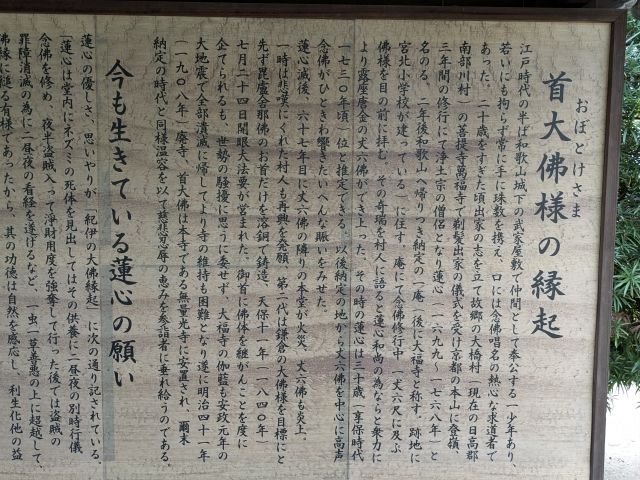 おぼとけさま
首大佛様の縁起
江戸時代の半ば和歌山城下の武家屋敷で仲間として奉公する一少年あり、
若いにも拘らず常に手に珠数を携え、口には念佛唱名の熱心な求道者で
あった。二十歳をすぎた頃出家の志を立て故郷の大橋村（現在の日高郡
南部川村）の菩提寺萬福寺で剃髪出家の儀式を受け京都の本山に登嶺、
三年間の修行にて浄土宗の僧侶となり蓮心（一六九九～一七六八年）と
名のる。二年後和歌山へ帰りつき納定の一庵（後に大福寺と称す、跡地に
宮北小学校が建っている）に住す。庵にて念佛修行中一丈六尺に及ぶ
佛様を目の前に拝む。その奇瑞を村人に語ると蓮心和尚の為ならと衆力に
より露座唐金の丈六佛ができ上った。その時の蓮心は三十歳、享保時代
一七三〇年頃）位と推定できる。以後納定の地から丈六佛を中心に高声
念佛がひときわ響きたいへんな賑いをみせた。
蓮心滅後、六十七年目に丈六佛の隣りの本堂が火災、丈六佛も炎上、
一時は悲嘆にくれた村人も再興を発願、第二代は鎌倉の大佛様を目標にと
先ず毘盧舎那佛のお首だけを溶銅し鋳造、天保十一年（一八四〇年）
七月二十四日開眼大法要が営まれた。御首に佛体を継がんことを度に
企てられるも、世勢の騒擾に思うに委せず、大福寺の伽藍も安政元年の
大地震で全部潰滅に帰してより寺の維持も困難となり遂に明治四十一年
（一九〇八年）廃寺、首大佛は本寺である無量光寺に安置され、爾来
納定の時代と同様温容を以て慈悲忍辱の恵みを参詣者に垂れ給うのである。
今も生きている蓮心の願い
蓮心の優しさ、思いやりが「紀伊の大佛縁起」に次の通り記されている。
「蓮心は堂内にネズミの死体を見出してはその供養に二昼夜の別時行儀
念佛を修め、夜半盗賊が入って浄財用度を強奪して行った後では盗賊の
罪障消滅の為に二昼夜の看経を遂げるなど、一虫一草善悪の上に超越して、
佛縁に縋る有様であったから、其の功徳は自然を感応し、利生化他の益